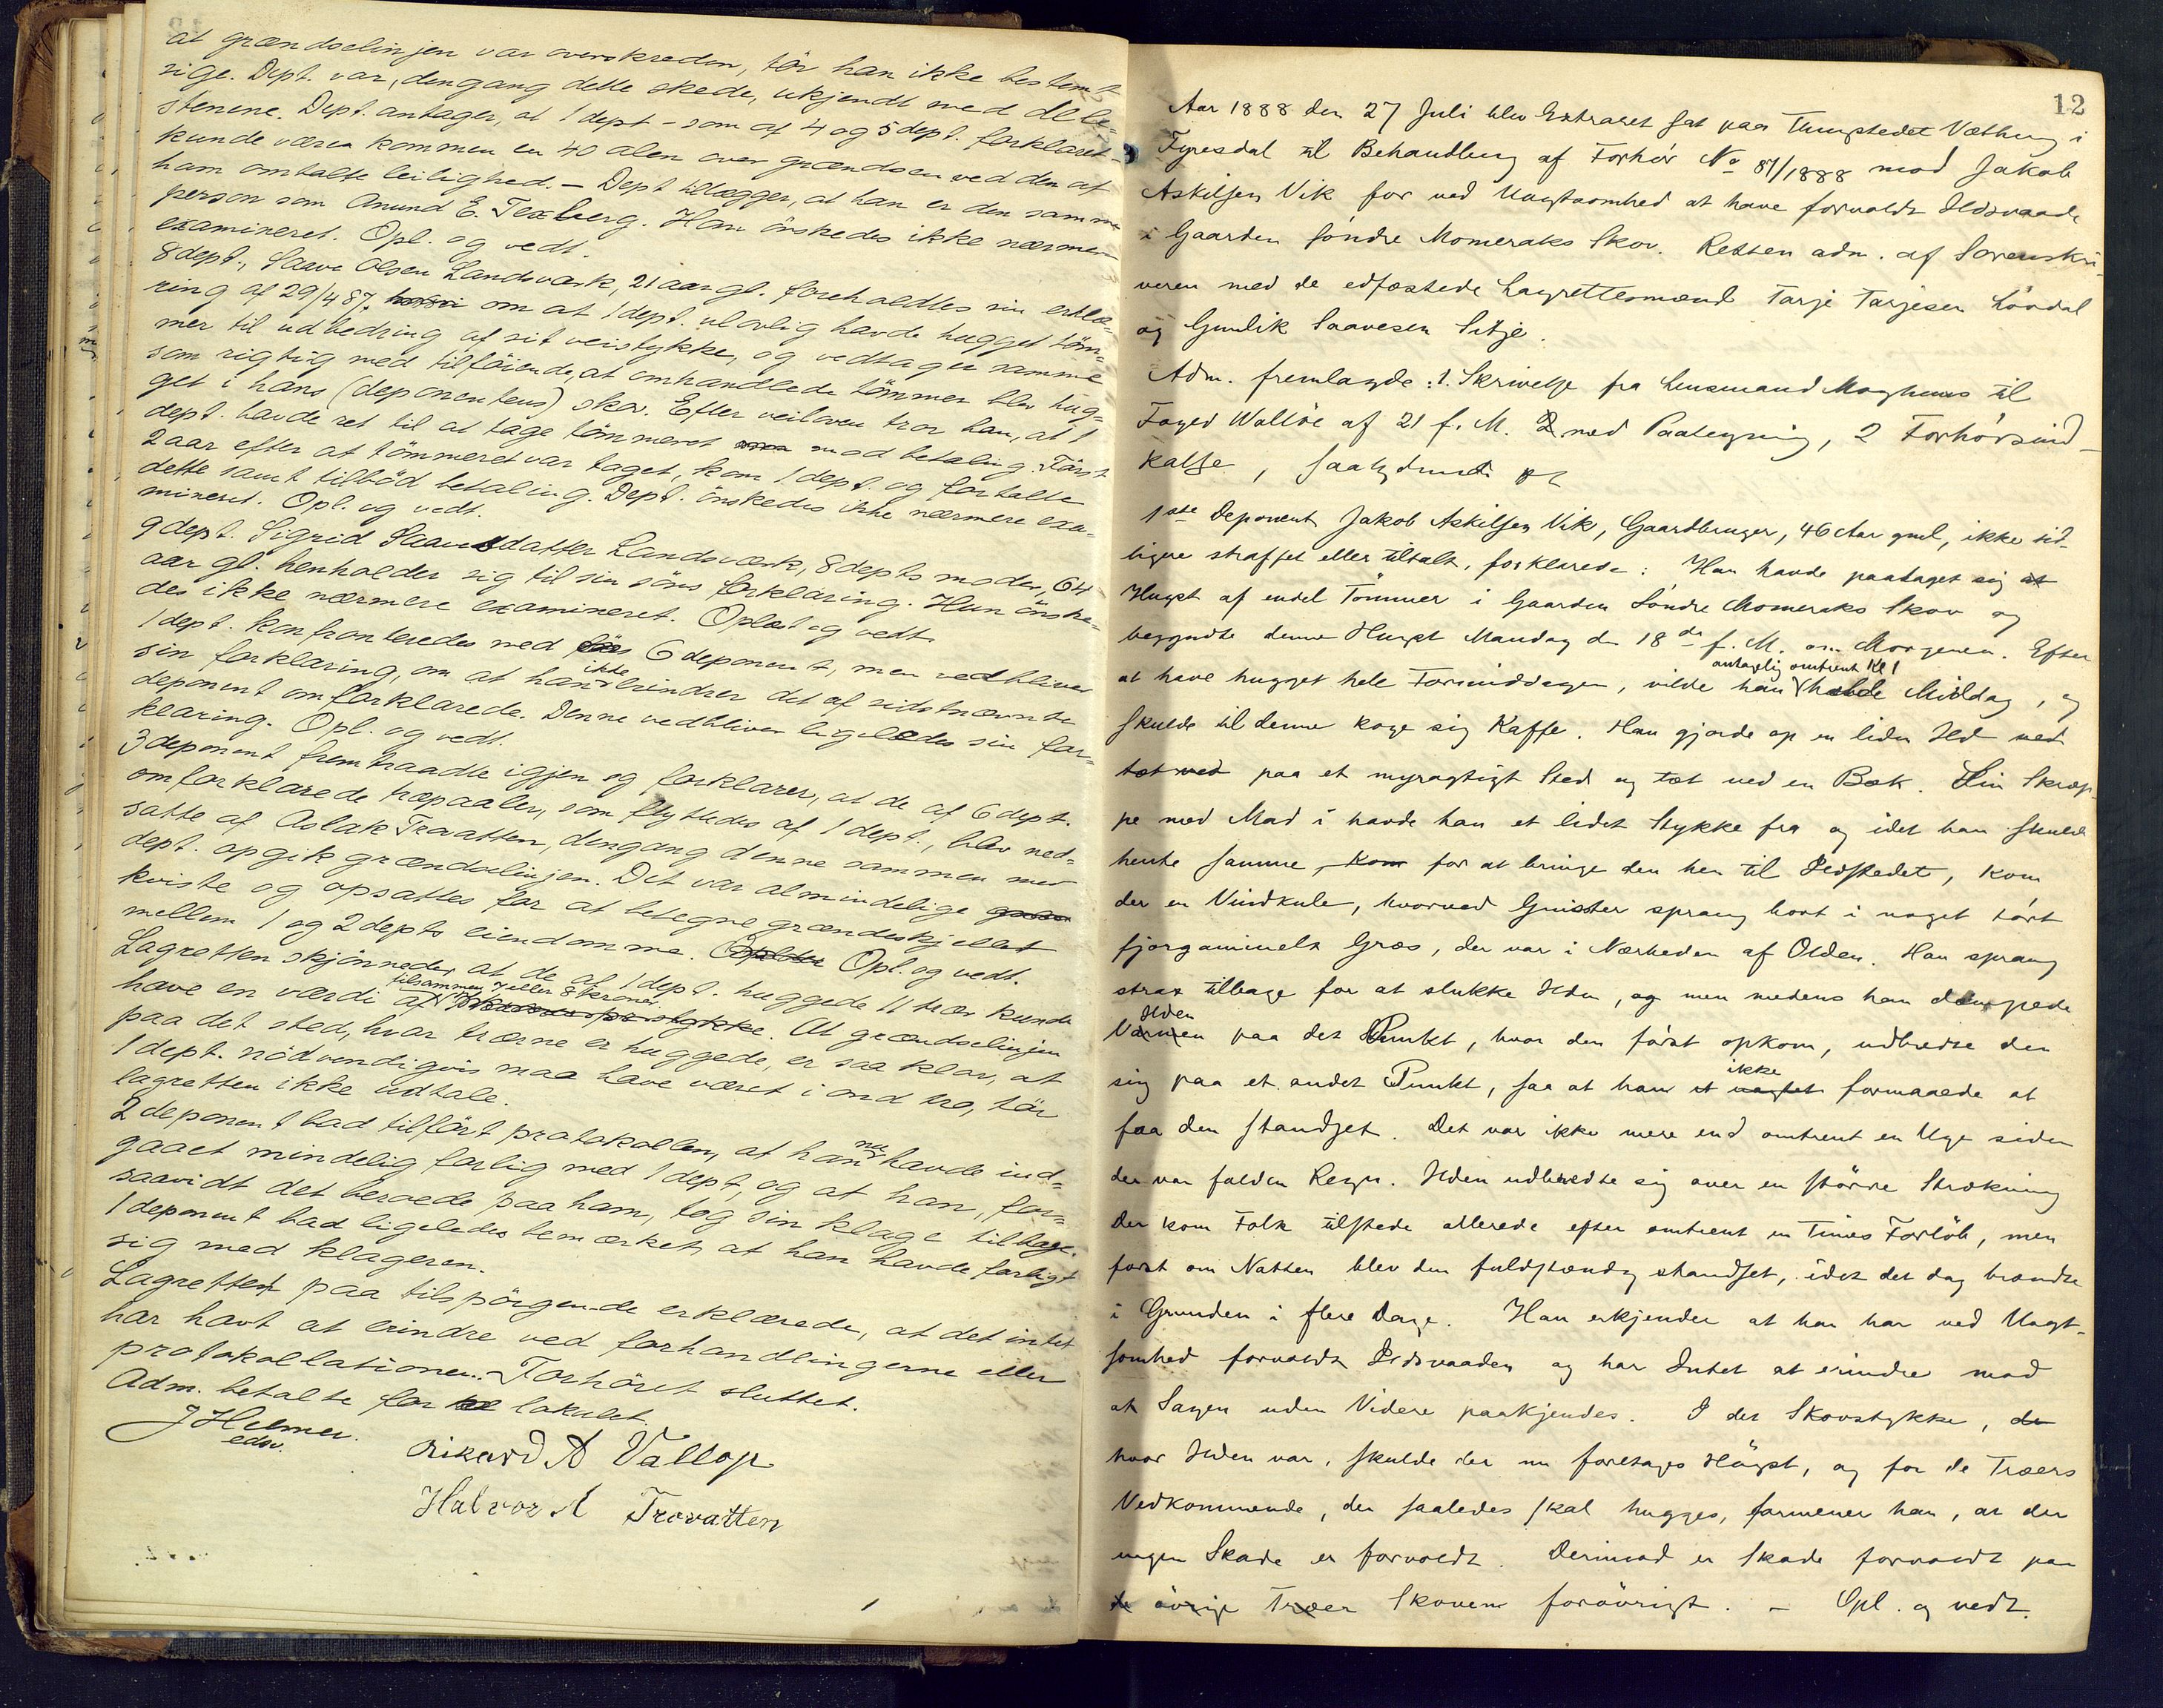 at grændselinjen var overskreden, tör han ikke bestemt
sige. Dept. var, dengang dette skede, ukjendt med dele-
stenene. Dept. antager, at 1 dept - som af 4 og 5 dept. forklaret -
kunde være kommen en 40 alen over grændsen ved den af
ham omtalte leilighed. - Dept tillægger, at han er den samme
person som Anund E. Texberg. Han önskedes ikke nærmere
examineret. Opl. og vedt.
8 dept., Saave Olsen Landsværk, 21 aar gl. foreholdtes sin erklæ-
ring af 29/4 87, om at 1 dept. ulovlig havde hugget töm-
mer til udbedring af sit veistykke, og vedtager samme
som rigtig med tilföiende, at omhandlede tömmer blev hug-
get i hans (deponentens) skov. Efter veiloven tror han, at 1
dept. havde ret til at tage tömmeret mod betaling. Först
2 aar efter at tömmeret var taget, kom 1 dept. og fortalte
dette samt tilböd betaling. Dept. önskedes ikke nærmere exa-
mineret. Opl. og vedt.
9 dept. Sigrid Saavesdatter Landsværk, 8 depts moder, 64
aar gl. henholder sig til sin söns forklaring. Hun önske-
des ikke nærmere examineret. Oplæst og vedt.
1 dept. konfronteredes med 6 deponent, men vedbliver
sin forklaring, om at han ikke erindrer det af sidstnævnte
deponent omforklarede. Denne vedbliver ligeledes sin for-
klaring. Opl. og vedt.
3 deponent fremtraadte igjen og forklarer, at de af 6 dept.
omforklarede træpaaler, som flyttedes af 1 dept., blev ned-
satte af Aslak Trovatten, dengang denne sammen med
dept. opgik grændselinjen. Det var almindelige
kviste og opsattes for at betegne grændseskjellet
mellem 1 og 2 depts eiendomme. Opl. og vedt.
Lagretten skjönneder, at de af 1 dept. huggede 11 trær kunde
have en værdi af tilsammen 7 eller 8 kroner. At grændselinjen
paa det sted, hvor trærne er huggede, er saa klar, at
1 dept. nödvendigvis maa have været i ond tro, tör
lagretten ikke udtale.
2 deponent bad tilfört protokollen, at han nu havde ind-
gaaet mindelig forlig med 1 dept, og at han, for-
saavidt det beroede paa ham, tog sin klage tilbage.
1 deponent bad ligeledes bemærket, at han havde forligt
sig med klageren.
Lagretten paa tilspörgende erklærede, at det intet
har havt at erindre ved forhandlingerne eller
protokollationen. Forhöret sluttet.
Adm. betalte for lokalet.
J Helmer.
edsv.
Rikard A Vallop
Halvor A Trovatten
12
Aar 1888 den 27 Juli blev Extraret sat paa Thingstedet Vætbing i
Fyresdal til Behandling af Forhör No 87/1888 mod Jakob
Askilsen Vik for ved Uagtsomhed at have forvoldt Ildsvaade
i Gaarden söndre Momeraks Skov. Retten adm. af Sorenskri-
veren med de edfæstede Lagrettesmænd Tarje Tarjesen Löndal
og Gunlik Saavesen Sitje.
Adm. fremlagde: 1. Skrivelse fra Lensmand Moghus til
Foged Wallöe af 21 f. M. med Paategning, 2 Forhörsind-
kalse, saalydende
1ste Deponent Jakob Askilsen Vik, Gaardbruger, 46 Aar gml, ikke tid-
ligere straffet eller tiltalt, forklarede: Han havde paataget sig
Hugst af endel Tömmer i Gaarden Söndre Momeraks Skov og
begyndte denne Hugst Mandag d 18de f. M. om Morgenen. Efter
at have hugget hele Formiddagen, vilde han antagelig omtrent Kl 1 holde Middag, og
skulde til denne koge sig Kaffe. Han gjorde op en liden Ild ved
tæt ved paa et myragtigt Sted og tæt ved en Bæk. Sin Skræp-
pe med Mad i havde han et lidet Stykke fra og idet han skulde
hente samme, kom for at bringe den hen til Ildstedet, kom
der en Vindkule, hvorved Gnister sprang bort i noget tört
fjorgammelt Græs, der var i Nærheden af Olden. Han sprang
strax tilbage for at slukke Ilden, og men medens han dæmpede
Varmen Ilden paa det Punkt, hvor den först opkom, udbredte den
sig paa et andet Punkt, saa at han ikke formaaede at
faa den standset. Det var ikke mere end omtrent en Uge siden
der var falden Regn. Ilden udbredte sig over en större Strækning
Der kom Folk tilstede allerede efter omtrent en Times Forlöb, men
först om Natten blev den fuldstændig standset, idet det dog brændte
i Grunden i flere Dage. Han erkjender at han har ved Uagt-
somhed forvoldt Ildsvaaden og har Intet at erindre mod
at Sagen uden Videre paakjendes. I det Skovstykke, de
hvor Ilden var, skulde der nu foretages Hugst, og for de Træers
Vedkommende, der saaledes skal hugges, formener han, at der
ingen Skade er forvoldt. Derimod er Skade forvoldt paa
de övrige Træer Skoven forövrigt. - Opl. og vedt.